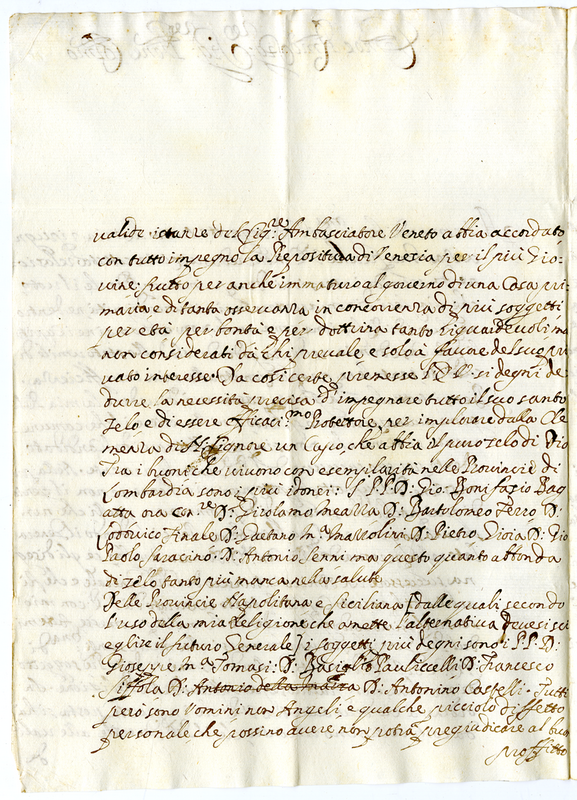 valide istanze del Sig.re Ambasciatore Veneto abbia accordato
con tutto impegno la Prepositura di Venesia per il più Gio-
vine frutto per anche immaturo al governo di una Casa pri
maria e di tanta osservanza in concorrenza di più soggetti
per età per bontà e per dottrina tanto riguardevoli ma
non considerati da chi prevale e solo à favore del suo pri
vato interesse. Da così certe premesse V. P. si degni de
durre la necessità precisa d'impegnare tutto il suo santo
zelo e di essere efficaci.mo Protettore per implorare dalla Cle
menza di N. Signore un Capo, che abbia il puro zelo di Dio
Fra i buoni che vivono con esemplarità nelle Provincie di
Lombardia sono i più idonei: I PP. D: Gio: Bonifazio Bag
atta ora con.re D: Girolamo Mearza D: Bartolomeo Ferro D:
Lodovico Finale D: Gaetano M.a Mazzolini D: Pietro Gioia D: Gio
Paolo Saracino D: Antonio Senni ma questo quanto abbonda
di zelo tanto più manca nella salute
Delle Provincie Napolitana e Siciliana [dalle quali secondo
l'uso della mia Religione che amette l'alternativa dovesi sci
eglire il futuro Generale] i soggetti più degni sono i PP. D:
Gioseppe M.a Tomasi: D: Basiglio Pauliccelli D: Francesco
Siffola D: Antonio della D: Antonino Castelli. Tutti
però sono Uomini non Angeli, e qualche picciolo diffetto
personale, che possino avere non potrà pregiudicare al buon
proffitto